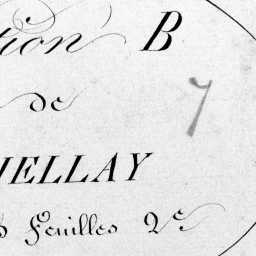 tion B
7
de
IELLAY
s Feuilles 2e